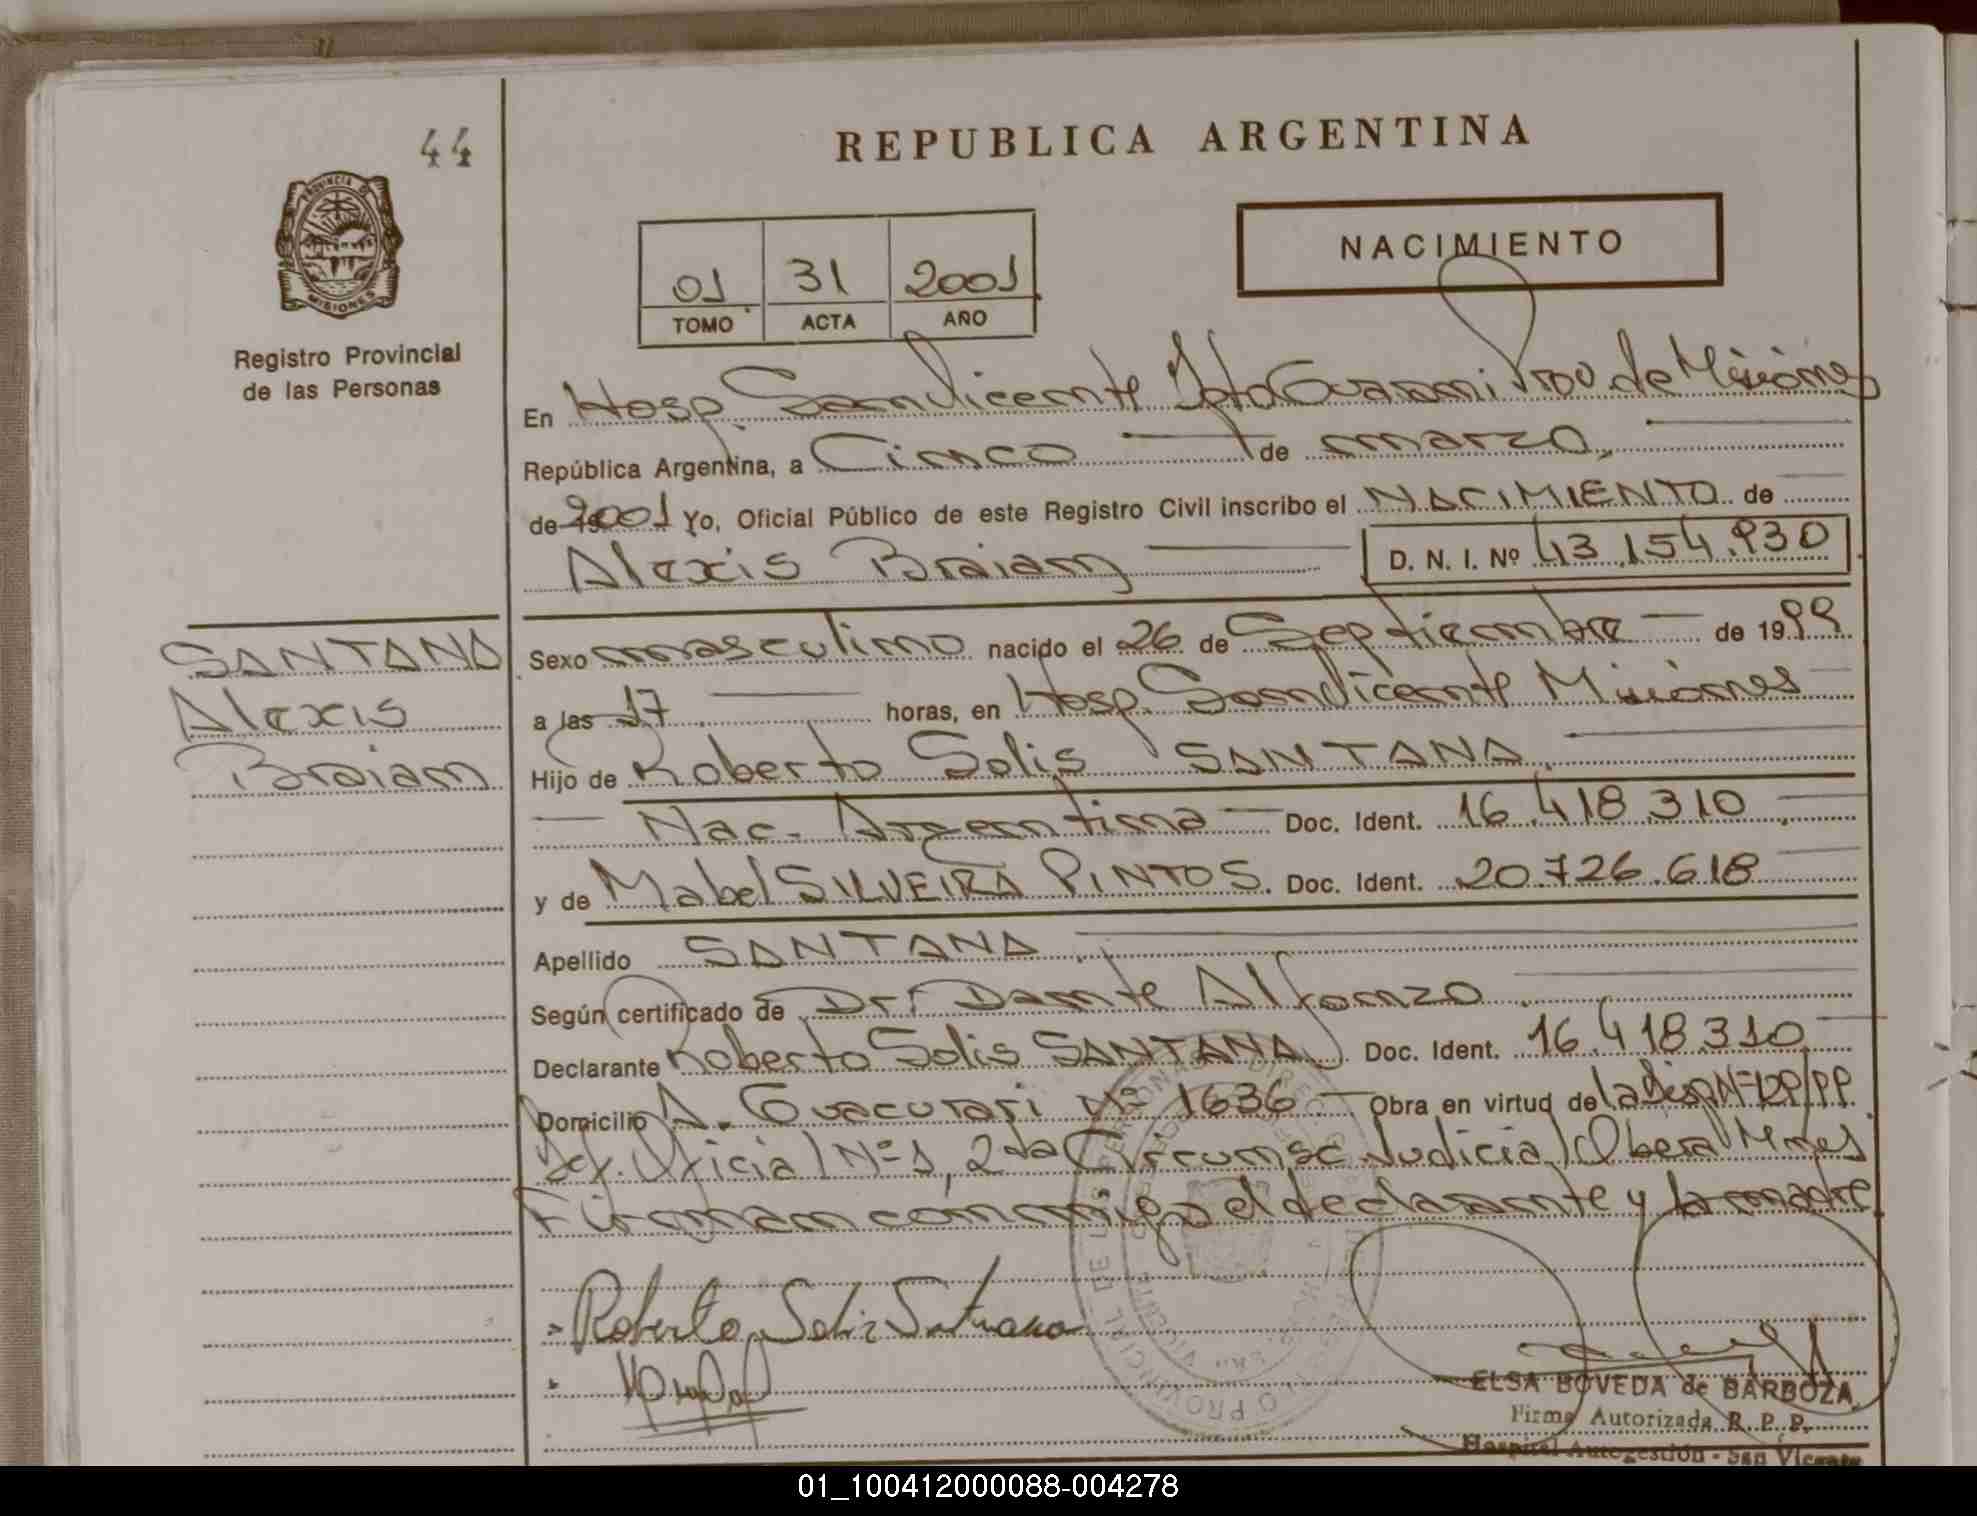 44
REPUBLICA ARGENTINA
PROVINCIA DE
MISIONES
Registro Provincial
de las Personas
01 31 2001
TOMO ACTA AÑO
NACIMIENTO
En Hosp. San Vicente Dpto Guarani Prov. de Misiones
República Argentina, a Cinco de marzo,
de 2001 Yo, Oficial Público de este Registro Civil inscribo el NACIMIENTO de
Alexis Braian D. N. I. Nº 43.154.930
SANTANA
Alexis
Braian
Sexo masculino nacido el 26 de Septiembre de 1999
a las 17 horas, en Hosp. San Vicente Misiones
Hijo de Roberto Solis SANTANA
Nac. Argentina Doc. Ident. 16.418.310
y de Mabel SILVEIRA PINTOS. Doc. Ident. 20.726.618
Apellido SANTANA
Según certificado de Dr. Dante Alfonzo
Declarante Roberto Solis SANTANA Doc. Ident. 16.418.310
Domicilio A. Guacurari Nº 1636 Obra en virtud de la Disp Nº
Oficial Nº 1, 2da Circunsc. Judicial Obera Mnes
Firman conmigo el declarante y la madre
Roberto Solis Santana
ELSA BOVEDA de BARBOZA
Firma Autorizada R. P. P.
Hospital Autogestión - San Vicente
01_100412000088-004278